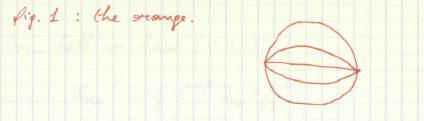 fig. 1 : the orange.